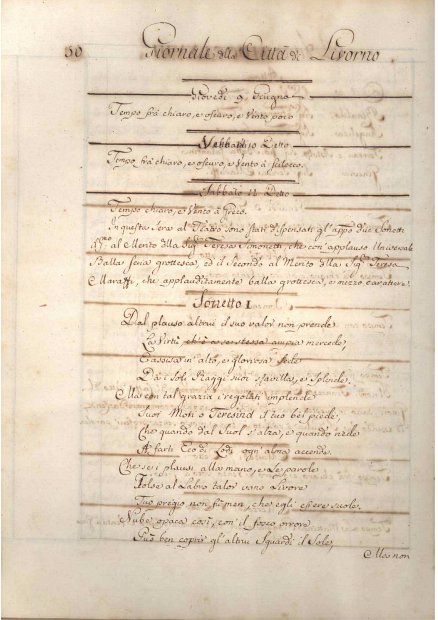 50 Giornale della Città di Livorno
Giovedì 9 Giugno
Tempo frà chiaro, e oscuro, e Vento poco
Tempo frà chiaro, e oscuro, e Vento à scilocco
Sabbato Detto
Tempo chiaro, e Vento à Greco.
In questa sera al Teatro sono stati dispensati gl'app: due Sonetti
p:mo al Merito della Sig:ra Teresa Simonetti, che con applauso Universale
Balla seria grottesca, ed il Secondo al Merito della Sig:ra Teresa
che applauditamente balla grottesco, e mezzo carattere.
Sonetto I
Dal plauso altrui il suo valor non prende
La Virtù ch'è a se stessa ampia mercede,
Assisa in alto, e gloriosa Sede
Da i soli Raggi suoi sfavilla, e splende.
Ma con tal grazia i regolati implende
Suoi Moti o Teresina il tuo bel piede,
Che quando dal Suol s'alza, e quando riede
A farti Eco di Lodi ogn'alma accende.
Che se i plausi alla mano, e Le parole
Tolse al Labro talor vano Livore
Tuo pregio non fù men, che egli essere suole.
Nube opaca così, con il fosco orrore
Può ben coprir gl'altrui Sguardi il Sole,
Ma non